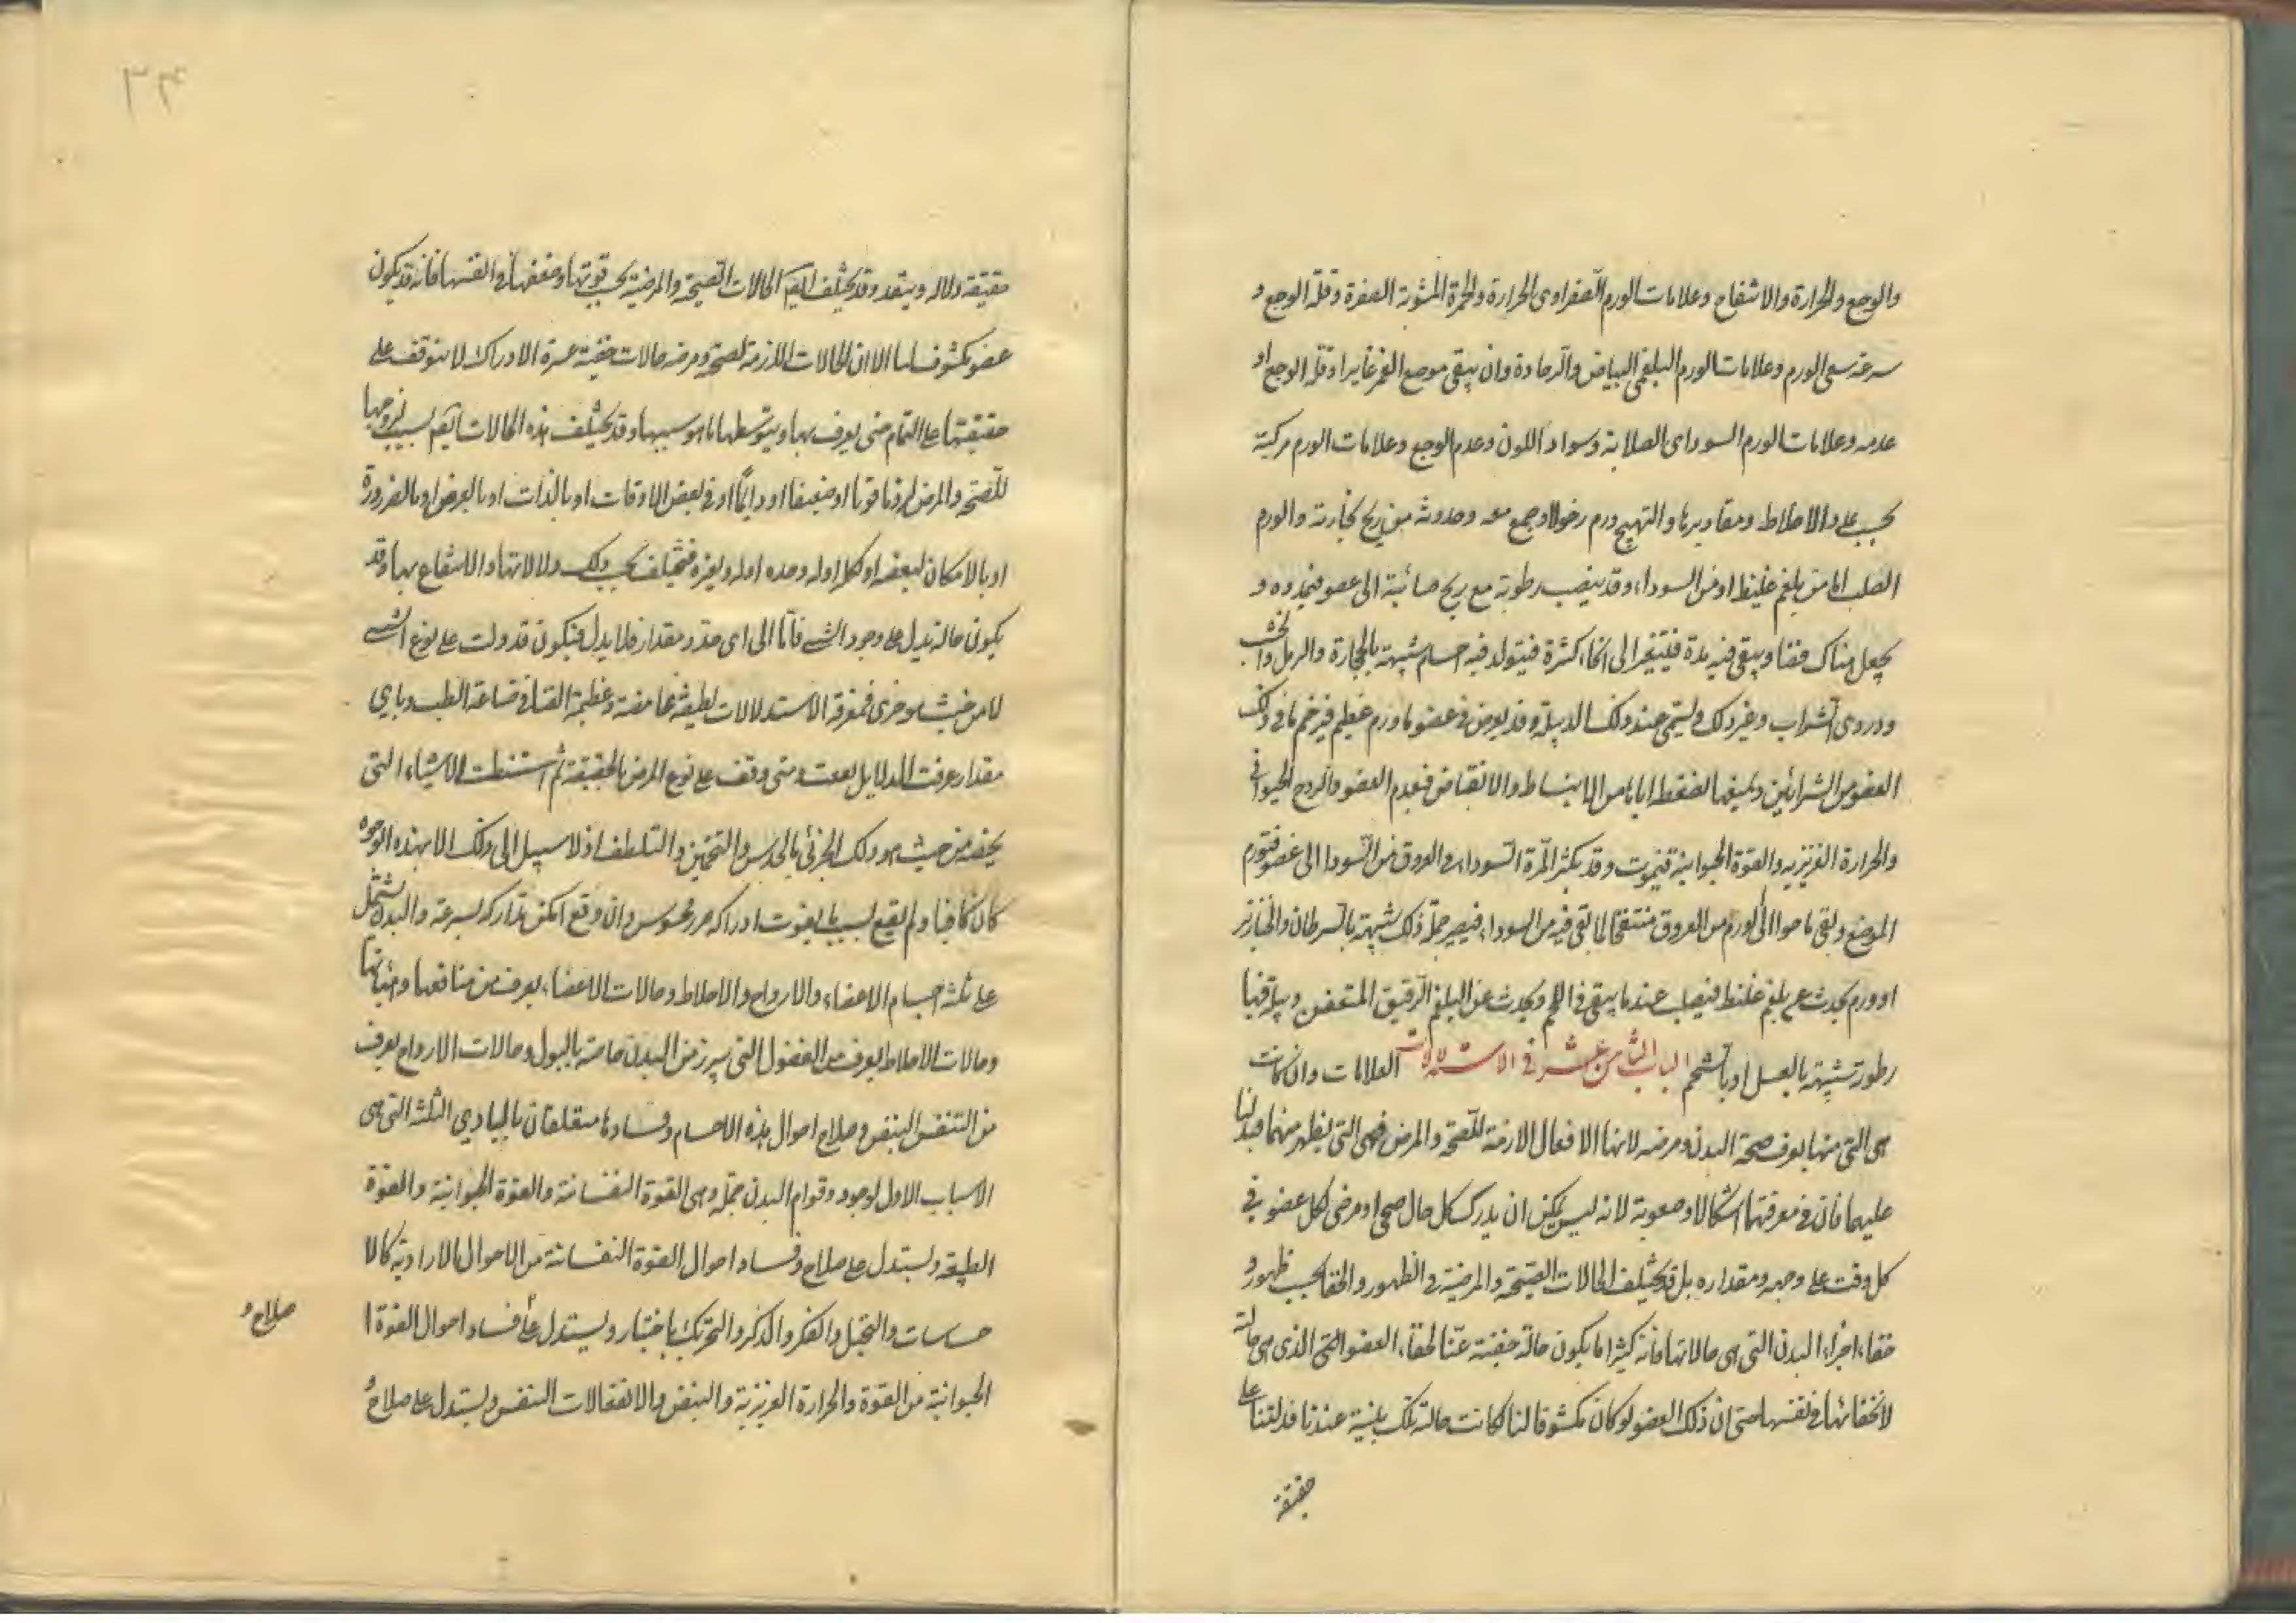 والوجع والحرارة والانتفاخ وعلامات الورم الصفراوى الحرارة والحمرة المشوبة الصفرة وقلة الوجع و
سرعة سعى الورم وعلامات الورم البلغمى البياض والرخاوة وان يبقى موضع الغمز غايرا وقلة الوجع او
عدمه وعلامات الورم السوداى الصلابة وسواد اللون وعدم الوجع وعلامات الورم مركبة
بحسب علو الاخلاط ومقاديرها والتهيج ورم رخو لا وجع معه وحدوثه من ريح بخارية والورم
الصلب اما من بلغم غليظ او من السوداء وقد ينصب رطوبة مع ريح الى عضو فيمدده و
يجعل هناك فضا ويبقى فيه مدة فيتغير الى انحاء كثيرة فيتولد فيه اجسام شبيهة بالحجارة والرمل والخشب
ودردى الشراب وغير ذلك ويسمى عند ذلك الدبيلة وقد يعرض فى عضو ما ورم عظيم فيزحم ما فى ذلك
العضو من الشرائين ويمنعها لضغطه اياها من الانبساط والانقباض فيعدم العضو والروح الحيوانى
والحرارة الغريزيه والقوة الحيوانية فيموت وقد يكثر المرة السوداء فى العروق من السودا الى عضو فتورم
الموضع ويبقى ما حوالى الورم من العروق منتفخا لما بقى فيه من السوداء فيصير جملة ذلك شبيهة بالسرطان والخنازير
او ورم يحدث عن بلغم غليظ فيصلب عندما يبقى فى اللحم ويحدث عن البلغم الرقيق المتعفن
رطوبة شبيهة بالعسل او بالشحم الباب الثامن عشر فى الاستدلالات العلامات وان كانت
هى التى منها يعرف صحة البدن ومرضه لانها الافعال الازمة للصحة والمرض فهى التى يظهر منهما
عليهما فان فى معرفتها اشكالا وصعوبة لانه ليس يمكن ان يدرك كل حال صحى او مرضى لكل عضو فى
كل وقت على وجهه ومقداره بل قد يختلف الحالات الصحية والمرضية فى الظهور والخفا بحسب ظهور و
خفاء اجزاء البدن التى هى حالاتها فانه كثيرا ما يكون حالة خفية عنا لخفاء العضو الذى هى حالة
لا لخفائها فى نفسها حتى ان ذلك العضو لو كان مكشوفا لنا لكانت حالة تلك بينة عندنا فدلتنا على
حقيقة
حقيقة ولاله وقد يختلف ايضا الحالات الصحية والمرضية بحسب قوتها وضعفها فى انفسها فانه قد يكون
عضو مكشوف لنا الا ان الحالات اللازمة لصحة ومرضه حالات خفية عسرة الادراك لا يتوقف على
حقيقتها على التمام حتى يعرف بها وبتوسطها ما هو سببها وقد يختلف هذه الحالات ايضا بسبب لزومها
للصحة والمرض لزوما قويا او ضعيفا او دايما او فى بعض الاوقات او بالذات او بالعرض او بالضرورة
او بالامكان لبعضه او كله او له وحده او له ولغيره فتختلف بحسب ذلك دلالاتها والانتفاع بها وقد
يكون حالة تدل على وجود الشىء فاما الى اى حد ومقدار فلا يدل فيكون قد دلت على نوع الشىء
لا من حيث هو جزى فمعرفة الاستدلالات لطيفة غامضة وعظيمة القدر فى صناعة الطب وباى
مقدار عرفت الدلايل نفعت ومتى وقف على نوع المرض بالحقيقة ثم استنبطت الاشياء التى
يخصه من حيث هو ذلك الجزئى بالحدس والتخمين والتلطف اذ لا سبيل الى ذلك الا بهذه الوجوه
كان كافيا ولم يقع بسبب ما يفوت ادراكه ضرر محسوس وان وقع امكن تداركه بسرعة والبدن يشتمل
على ثلثة اجسام الاعضاء والارواح والاخلاط وحالات الاعضاء يعرف من منافعها وهيئاتها
وحالات الاخلاط يعرف من الفضول التى يبرز من البدن خاصة بالبول وحالات الارواح يعرف
من التنفس النبض وصلاح احوال هذه الاجسام وفسادها متعلقان بالمبادي الثلثة التى هى
الاسباب الاول لوجود وقوام البدن جملة وهى القوة النفسانية والقوة الحيوانية والقوة
الطبيعية ويستدل على صلاح وفساد احوال القوة النفسانية من الاحوال الارادية كالا
حساسات والتخيل والفكر والذكر والتحريك باختيار ويستدل على فساد احوال القوة ا
صلاح و
الحيوانية من القوة والحرارة الغريزية والنبض والانفعالات النفس ويستدل على صلاح و